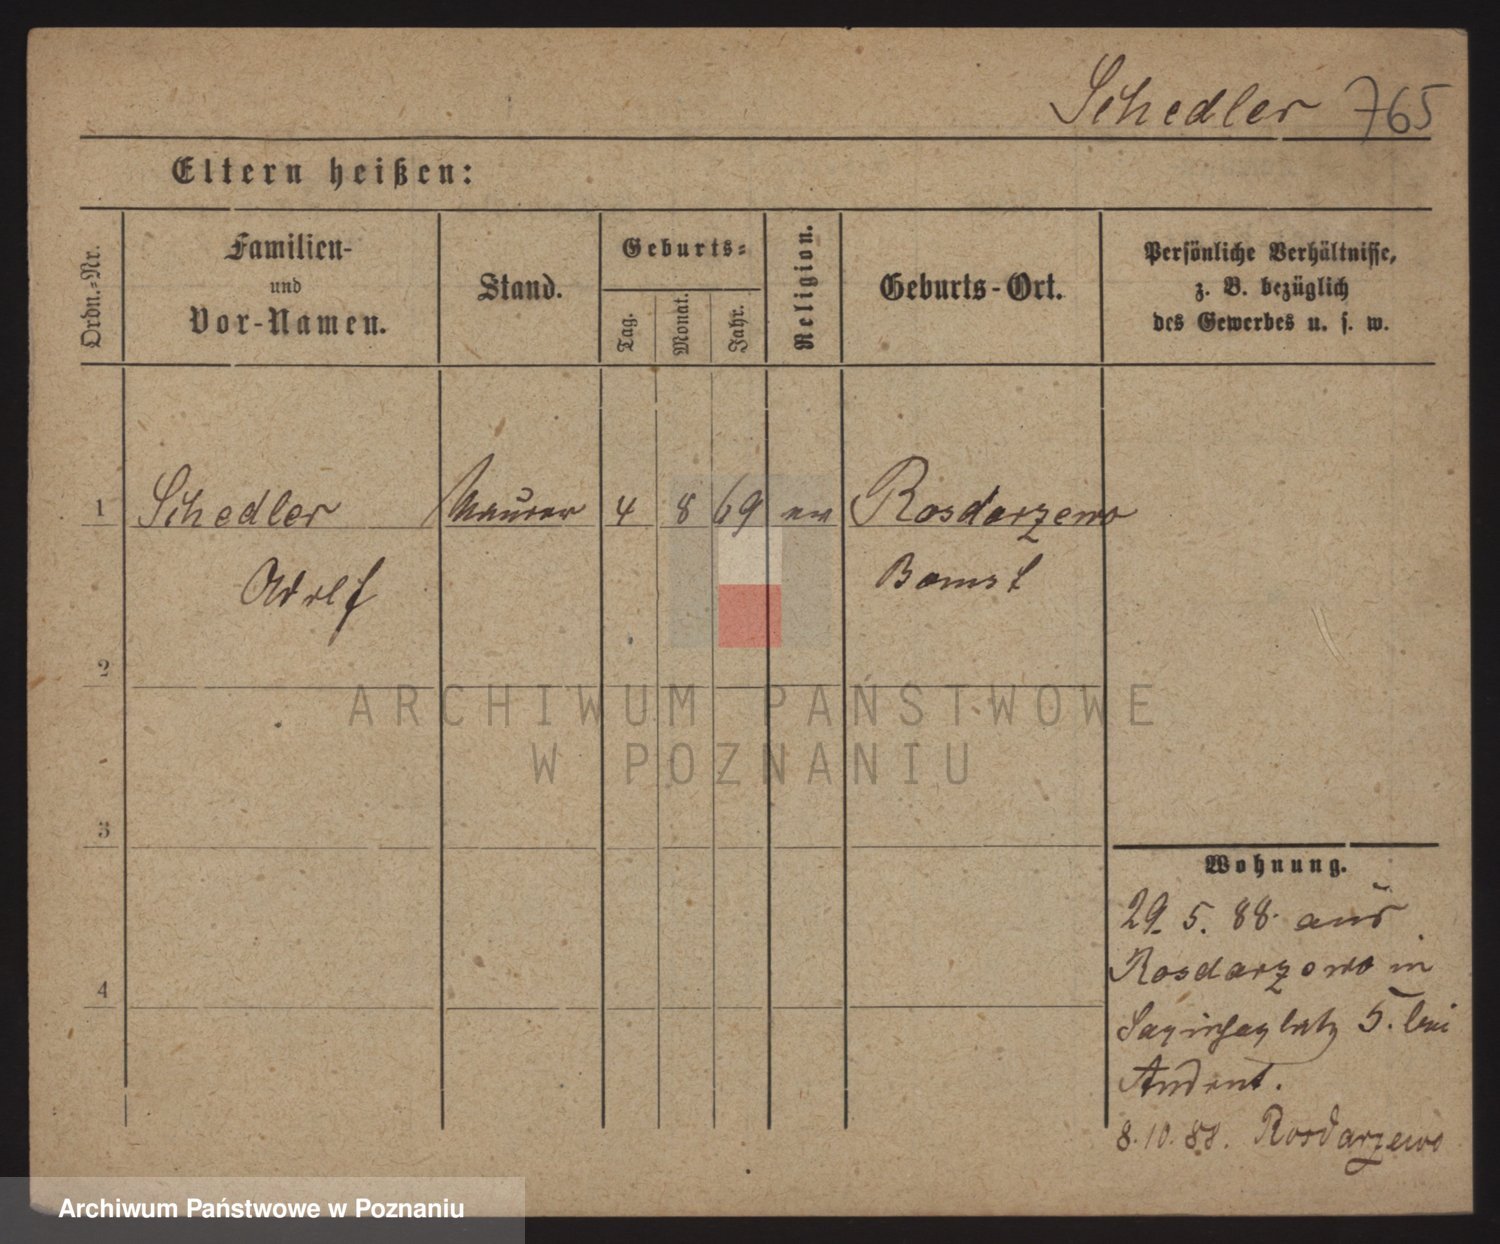 Schedler 765
Eltern heißen:
Ordn.-Nr.
Familien-
und
Vor-Namen.
Stand.
Geburts-
Tag.
Monat.
Jahr.
Religion.
Geburts-Ort.
Persönliche Verhältnisse,
z. B. bezüglich
des Gewerbes u. s. w.
1 Schedler Maurer 4 8 69 ev Rosdarzewo
Adolf Bomst
2
ARCHIWUM PAŃSTWOWE
W POZNANIU
3
Wohnung.
29. 5. 88. aus
Rosdarzewo in
4
Sapiehaplatz 5. bei
8.10.88. Rosdarzewo
Archiwum Państwowe w Poznaniu